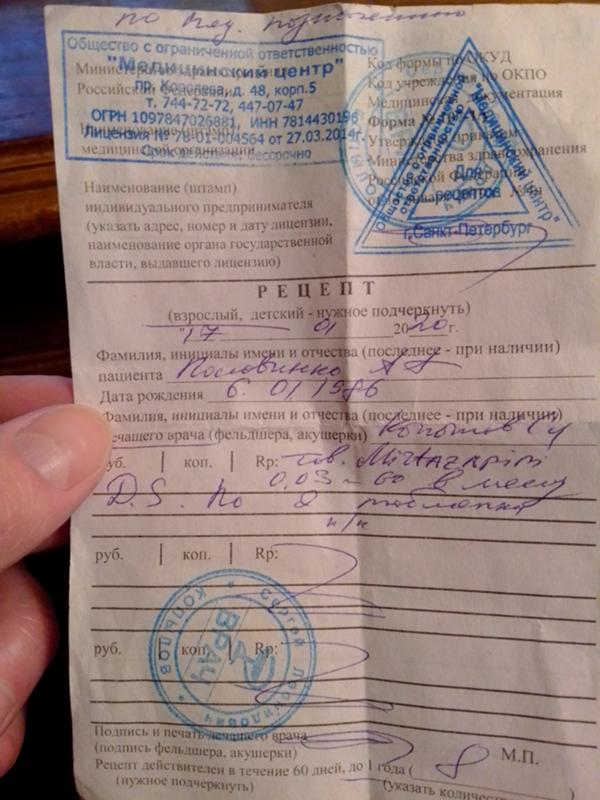 по мед. назначению
Общество с ограниченной ответственностью
"Медицинский центр"
пр. Королева, д. 48, корп.5
т. 744-72-72, 447-07-47
ОГРН 1097847026881, ИНН 7814430196
Лицензия № 78-01-004564 от 27.03.2014г.
Срок действия: бессрочно
Министерство здравоохранения
Российской Федерации
Наименование (штамп)
медицинской организации
Код формы по ОКУД
Код учреждения по ОКПО
Медицинская документация
Форма №
Утверждена приказом
Министерства здравоохранения
Российской Федерации
Общество с ограниченной ответственностью
"Медицинский центр"
Для рецептов
г.Санкт-Петербург
Наименование (штамп)
индивидуального предпринимателя
(указать адрес, номер и дату лицензии,
наименование органа государственной
власти, выдавшего лицензию)
РЕЦЕПТ
(взрослый, детский - нужное подчеркнуть)
"17 01 2020 г.
Фамилия, инициалы имени и отчества (последнее - при наличии)
пациента
Дата рождения 6. 01 1986
Фамилия, инициалы имени и отчества (последнее - при наличии)
лечащего врача (фельдшера, акушерки)
руб. | коп. | Rp: tab. Mirtazapini
0,03 - 60 в месяц
D.S. по 2 таблетки
н/н
руб. | коп. | Rp:
руб. | коп. | Rp:
Сергей Давидович Копылов
ВРАЧ
Подпись и печать лечащего врача
(подпись фельдшера, акушерки)
М.П.
Рецепт действителен в течение 60 дней, до 1 года (
(нужное подчеркнуть)
(указать количество